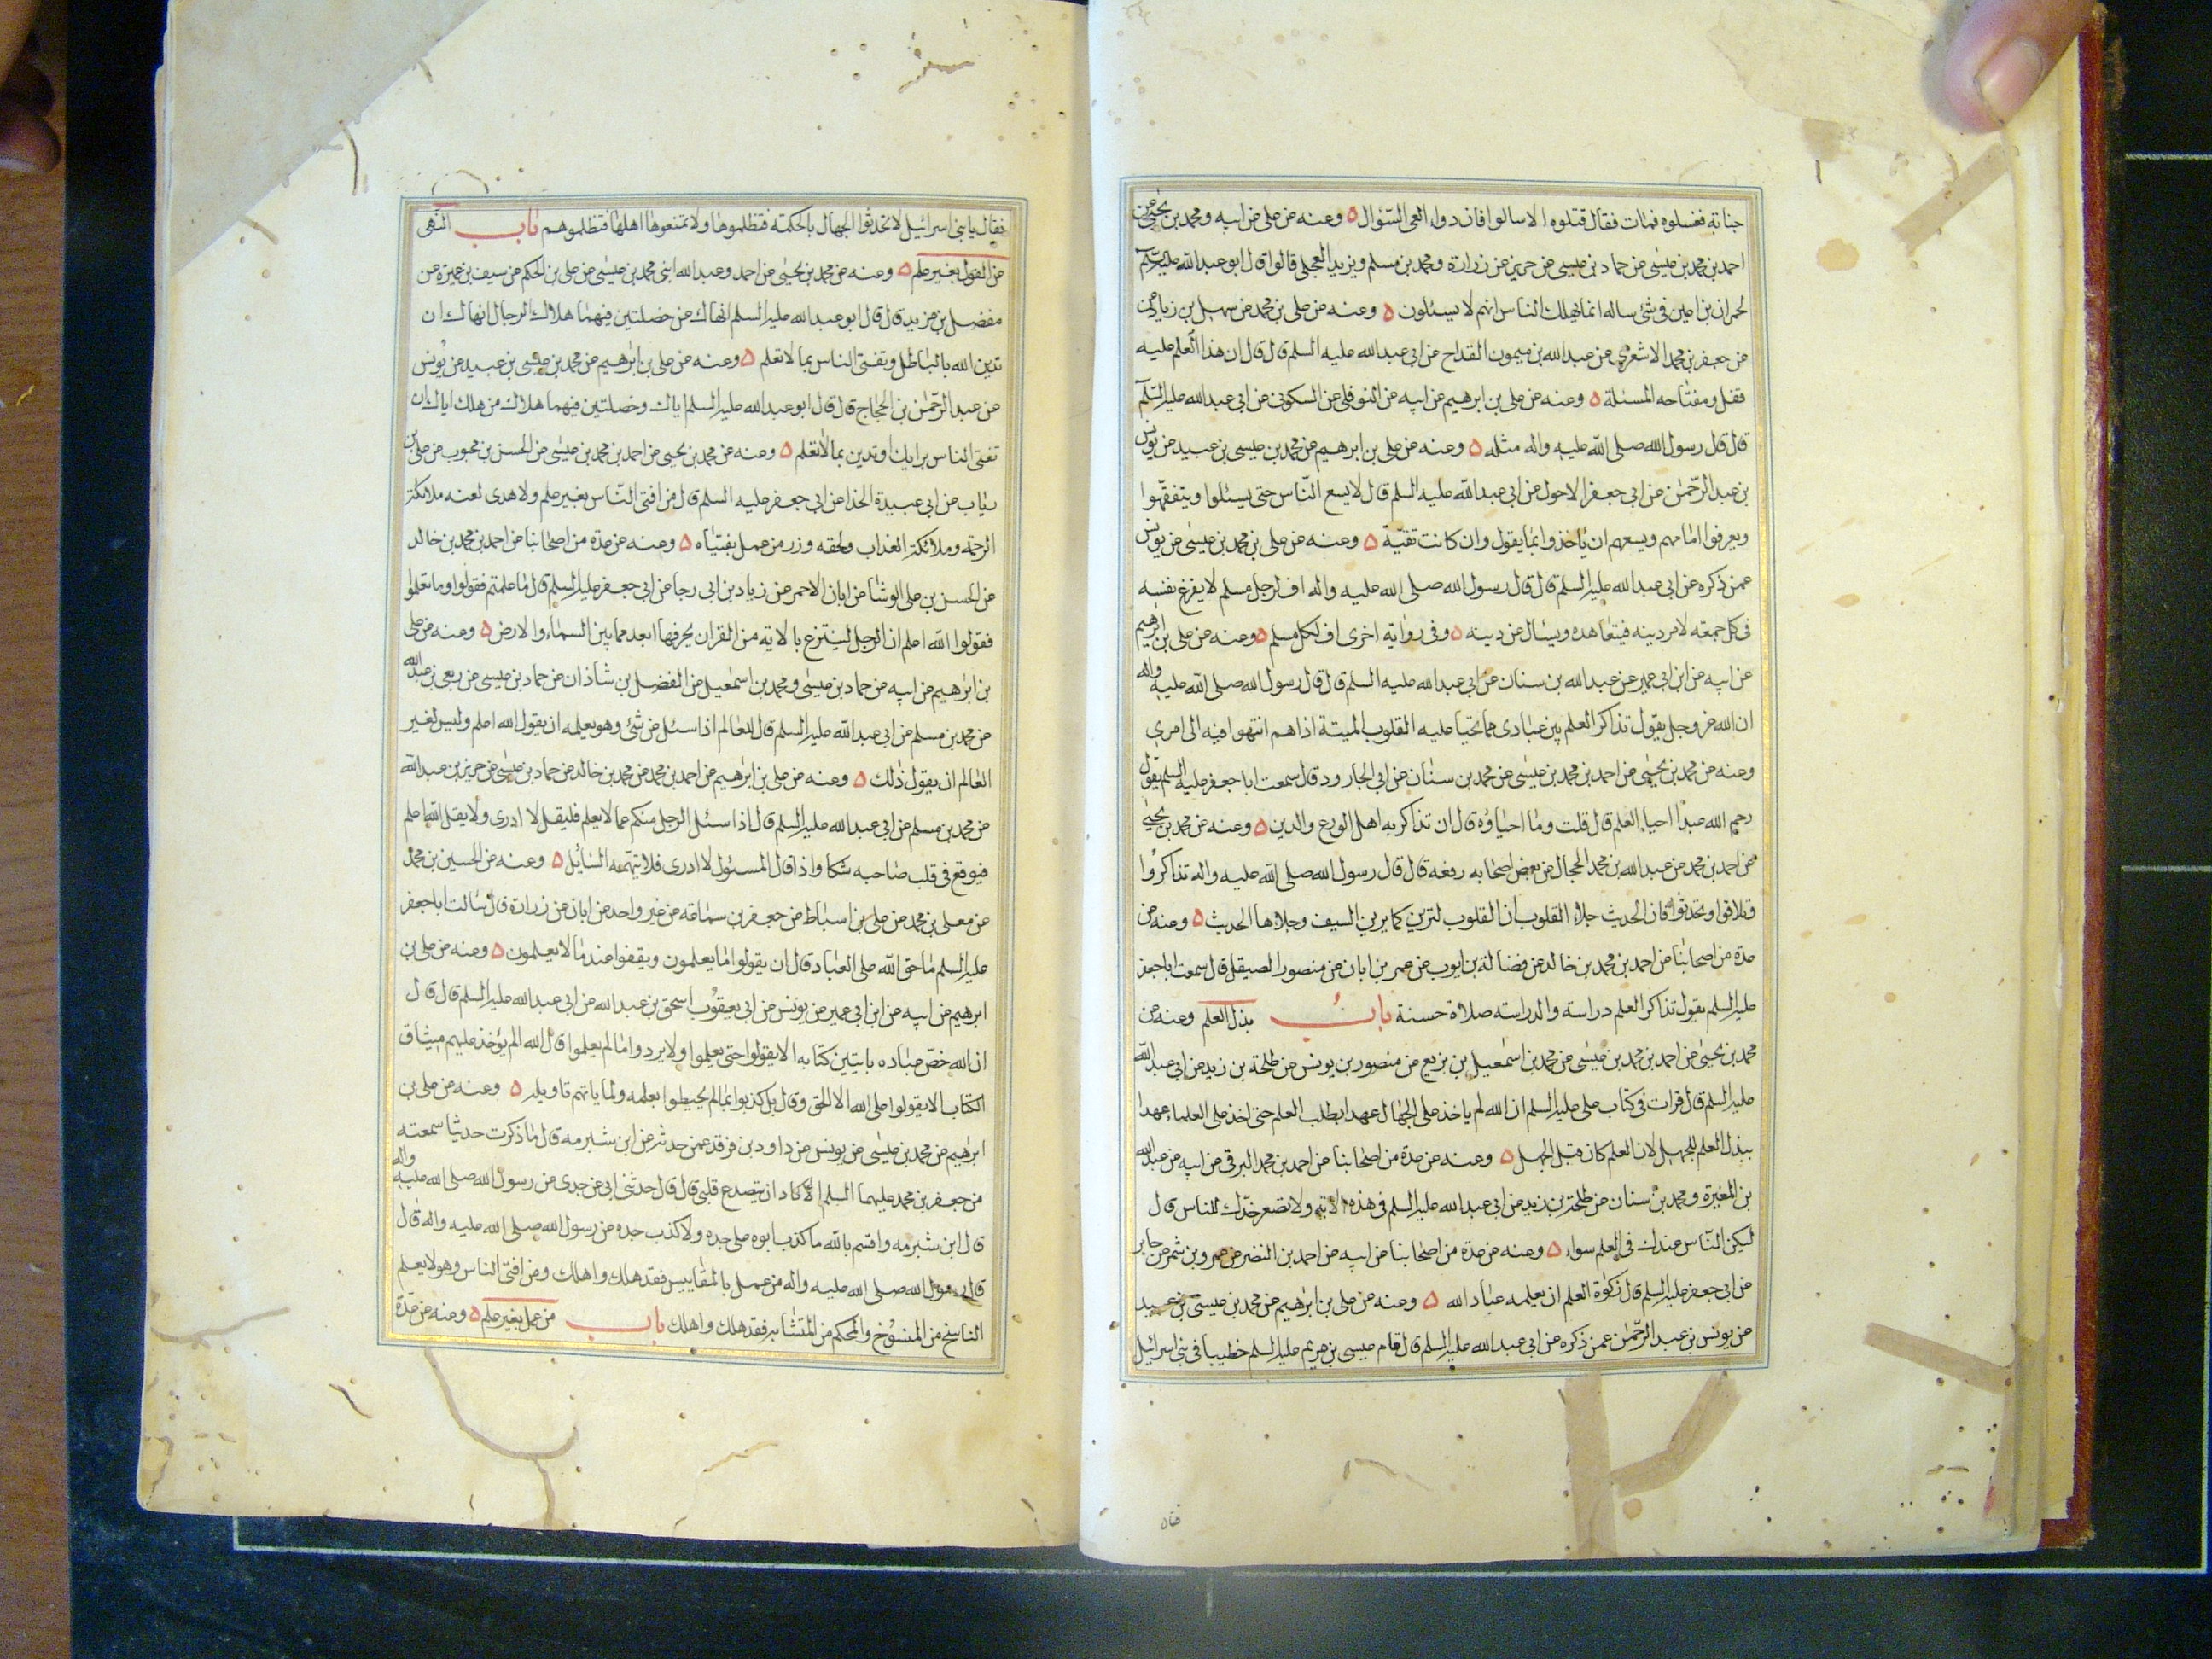 جنابة فغسلوه فمات فقال قتلوه الا سالوا فان دواء العى السّؤال ٥ وعنه عن على عن ابيه ومحمد بن يحيى عن
احمد بن محمد بن عيسى عن حماد بن عيسى عن حريز عن زرارة ومحمد بن مسلم ويزيد العجلى قالوا قال ابو عبد الله عليه السّلم
لحمران بن اعين فى شئ ساله انما يهلك الناس انهم لا يسئلون ٥ وعنه عن على بن محمد عن سهل بن زياد عن
عن جعفر بن محمد الاشعرى عن عبد الله بن ميمون القداح عن ابى عبد الله عليه السلم قال قال ان هذا العلم عليه
قفل ومفتاحه المسئلة ٥ وعنه عن على بن ابرهيم عن ابيه عن النوفلى عن السكونى عن ابى عبد الله عليه السّلم
قال قال رسول الله صلى الله عليه واله مثله ٥ وعنه عن على بن ابرهيم عن محمد بن عيسى بن عبيد عن يونس
بن عبد الرّحمن عن ابى جعفر الاحول عن ابى عبد الله عليه السلم قال لا يسع النّاس حتى يسئلوا ويتفقّهوا
ويعرفوا امامهم ويسعهم ان ياخذوا بما يقول وان كانت تقيّة ٥ وعنه عن على بن محمد بن عيسى عن يونس
عمن ذكره عن ابى عبد الله عليه السلم قال قال رسول الله صلى الله عليه واله اف لرجل مسلم لا يفرغ نفسه
فى كل جمعة لامر دينه فيتعاهده ويسئال عن دينه ٥ وفى رواية اخرى اف لكل مسلم ٥ وعنه عن على بن ابرهيم
عن ابيه عن ابن ابى عمير عن عبد الله بن سنان عن ابى عبد الله عليه السلم قال قال رسول الله صلى الله عليه واله
ان الله عز وجل يقول تذاكر العلم بين عبادى مما تحيا عليه القلوب الميتة اذا هم انتهوا فيه الى امرى
وعنه عن محمد بن يحيى عن احمد بن محمد بن عيسى عن محمد بن سنان عن ابى الجارود قال سمعت ابا جعفر عليه السلم يقول
رحم الله عبدا احيا العلم قال قلت وما احياؤه قال ان تذاكر به اهل الورع والدين ٥ وعنه عن محمد بن يحيى
عن احمد بن محمد عن عبد الله بن محمد الحجال عن بعض اصحابه رفعه قال قال رسول الله صلى الله عليه واله تذاكروا
وتلاقوا وتحدثوا فان الحديث جلاء القلوب ان القلوب لترين كما يرين السيف وجلاها الحديث ٥ وعنه عن
عدة من اصحابنا عن احمد بن محمد بن خالد عن فضالة بن ايوب عن عمر بن ابان عن منصور الصيقل قال سمعت ابا جعفر
عليه السلم يقول تذاكر العلم دراسة والدراسة صلاة حسنة باب بذل العلم وعنه عن
محمد بن يحيى عن احمد بن محمد بن عيسى عن محمد بن اسمعيل بن بزيع عن منصور بن يونس عن طلحة بن زيد عن ابى عبد الله
عليه السلم قال قرات فى كتاب على عليه السلم ان الله لم ياخذ على الجهال عهدا بطلب العلم حتى اخذ على العلماء عهدا
ببذل العلم للجهل لان العلم كان قبل الجهل ٥ وعنه عن عدة من اصحابنا عن احمد بن محمد البرقى عن ابيه عن عبد الله
بن المغيرة ومحمد بن سنان عن طلحة بن زيد عن ابى عبد الله عليه السلم فى هذه الاية ولا تصعر خدّك للناس قال
ليكن النّاس عندك فى العلم سواء ٥ وعنه عن عدة من اصحابنا عن ابيه عن احمد بن النضر عن عمرو بن شمر عن جابر
عن ابى جعفر عليه السلم قال زكوة العلم ان يعلمه عباد الله ٥ وعنه عن على بن ابرهيم عن محمد بن عيسى بن عبيد
عن يونس بن عبد الرّحمن عمن ذكره عن ابى عبد الله عليه السلم قال قام عيسى بن مريم عليه السلم خطيبا فى بنى اسرائيل
فقال يا بنى اسرائيل لا تحدثوا الجهال بالحكمة فتظلموها ولا تمنعوها اهلها فتظلموهم باب النّهى
عن القول بغير علم ٥ وعنه عن محمد بن يحيى عن احمد وعبد الله ابنى محمد بن عيسى عن على بن الحكم عن سيف بن عميرة عن
مفضل بن مزيد قال قال ابو عبد الله عليه السلم انهاك عن خصلتين فيهما هلاك الرجال انهاك ان
تدين الله بالباطل وتفتى الناس بما لا تعلم ٥ وعنه عن على بن ابرهيم عن محمد بن عيسى بن عبيد عن يونس
عن عبد الرّحمن بن الحجاج قال قال ابو عبد الله عليه السلم اياك وخصلتين فيهما هلاك من هلك اياك ان
تفتى الناس برايك او تدين بما لا تعلم ٥ وعنه عن محمد بن يحيى عن احمد بن محمد بن عيسى عن الحسن بن محبوب عن على بن
رياب عن ابى عبيدة الحذا عن ابى جعفر عليه السلم قال من افتى النّاس بغير علم ولا هدى لعنه ملائكة
الرحمة وملائكة العذاب ولحقه وزر من عمل بفتياه ٥ وعنه عن عدة من اصحابنا عن احمد بن محمد بن خالد
عن الحسن بن على الوشا عن ابان الاحمر عن زياد بن ابى رجا عن ابى جعفر عليه السلم قال ما علمتم فقولوا وما تعلموا
فقولوا الله اعلم ان الرجل لينتزع بالاية من القران يحرفها ابعد مما بين السماء والارض ٥ وعنه عن على
بن ابرهيم عن ابيه عن حماد بن عيسى ومحمد بن اسمعيل عن الفضل بن شاذان عن حماد بن عيسى عن ربعى بن عبد الله
عن محمد بن مسلم عن ابى عبد الله عليه السلم قال للعالم اذا سئل عن شئ وهو يعلمه ان يقول الله اعلم وليس لغير
العالم ان يقول ذلك ٥ وعنه عن على بن ابرهيم عن احمد بن محمد عن محمد بن خالد عن حماد بن عيسى عن حريز بن عبد الله
عن محمد بن مسلم عن ابى عبد الله عليه السلم قال اذا سئل الرجل منكم عما لا يعلم فليقل لا ادرى ولا يقل الله اعلم
فيوقع فى قلب صاحبه شكا واذا قال المسئول لا ادرى فلا يتهمه السّايل ٥ وعنه عن الحسين بن محمد
عن معلى بن محمد عن على بن اسباط عن جعفر بن سماعه عن غير واحد عن ابان عن زرارة قال سالت ابا جعفر
عليه السلم ما حق الله على العباد قال ان يقولوا ما يعلمون ويقفوا عند ما لا يعلمون ٥ وعنه عن على بن
ابرهيم عن ابيه عن ابن ابى عمير عن يونس عن ابى يعقوب اسحق بن عبد الله عن ابى عبد الله عليه السلم قال قال
ان الله خصّ عباده بايتين كتابه الا يقولوا حتى يعلموا ولا يردوا ما لم يعلموا قال الله الم يؤخذ عليهم ميثاق
الكتاب الا يقولوا على الله الا الحق وقال بل كذبوا بما لم يحيطوا بعلمه ولما ياتهم تاويله ٥ وعنه عن على بن
ابرهيم عن محمد بن عيسى عن يونس عن داود بن فرقد عمن حدثه عن ابن شبرمه قال ما ذكرت حديثا سمعته
من جعفر بن محمد عليهما السلم الا كاد ان يتصدع قلبى قال قال حدثنى ابى عن جدى عن رسول الله صلى الله عليه واله
قال ابن شبرمه واقسم بالله ما كذب ابوه على جده ولا كذب جده عن رسول الله صلى الله عليه واله قال
قال رسول الله صلى الله عليه واله من عمل بالمقاييس فقد هلك واهلك ومن افتى الناس وهو لا يعلم
الناسخ من المنسوخ والمحكم من المتشابه فقد هلك واهلك باب من عمل بغير علم ٥ وعنه عن عدة